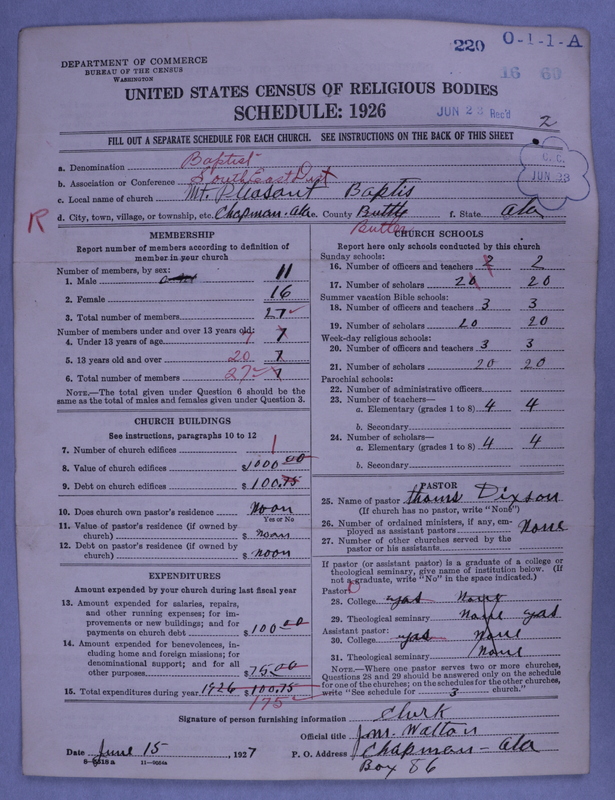 220 O-1-1-A
16 60
DEPARTMENT OF COMMERCE
BUREAU OF THE CENSUS
WASHINGTON
UNITED STATES CENSUS OF RELIGIOUS BODIES
SCHEDULE: 1926
JUN 23 Rec'd
2
FILL OUT A SEPARATE SCHEDULE FOR EACH CHURCH. SEE INSTRUCTIONS ON THE BACK OF THIS SHEET
JUN 23
a. Denomination Baptist
b. Association or Conference South East Dist
c. Local name of church Mt. Pleasant Baptis
R
d. City, town, village, or township, etc. Chapman. Ala e. County Buttle f. State Ala
Butler
MEMBERSHIP
Report number of members according to definition of
member in your church
Number of members, by sex:
1. Male 11
2. Female 16
3. Total number of members 27
Number of members under and over 13 years old:
4. Under 13 years of age 7 7
5. 13 years old and over 20 7
6. Total number of members 27 7
NOTE.—The total given under Question 6 should be the
same as the total of males and females given under Question 3.
CHURCH BUILDINGS
See instructions, paragraphs 10 to 12
7. Number of church edifices 1
8. Value of church edifices $1000.00
9. Debt on church edifices $100.75
10. Does church own pastor's residence Noon
Yes or No
11. Value of pastor's residence (if owned by
church) $ noon
12. Debt on pastor's residence (if owned by
church) $ noon
EXPENDITURES
Amount expended by your church during last fiscal year
13. Amount expended for salaries, repairs,
and other running expenses; for im-
provements or new buildings; and for
payments on church debt $100.00
14. Amount expended for benevolences, in-
cluding home and foreign missions; for
denominational support; and for all
other purposes $75.00
15. Total expenditures during year 1926 $100.75
175
CHURCH SCHOOLS
Report here only schools conducted by this church
Sunday schools:
16. Number of officers and teachers 2 2
17. Number of scholars 20 20
Summer vacation Bible schools:
18. Number of officers and teachers 3 3
19. Number of scholars 20 20
Week-day religious schools:
20. Number of officers and teachers 3 3
21. Number of scholars 20 20
Parochial schools:
22. Number of administrative officers
23. Number of teachers—
a. Elementary (grades 1 to 8) 4 4
b. Secondary
24. Number of scholars—
a. Elementary (grades 1 to 8) 4 4
b. Secondary
PASTOR
25. Name of pastor Thoms Dixson
(If church has no pastor, write "None")
26. Number of ordained ministers, if any, em-
ployed as assistant pastors None
27. Number of other churches served by the
pastor or his assistants
If pastor (or assistant pastor) is a graduate of a college or
theological seminary, give name of institution below. (If
not a graduate, write "No" in the space indicated.)
Pastor:
28. College yas None
29. Theological seminary None yas
Assistant pastor:
30. College yas None
31. Theological seminary None
NOTE.—Where one pastor serves two or more churches,
Questions 28 and 29 should be answered only on the schedule
for one of the churches; on the schedules for the other churches,
write "See schedule for 3 church."
Signature of person furnishing information Clurk
Official title J.M. Walton
Date June 15, 1927 P. O. Address Chapman - Ala
Box 86
8—5518a 11—9064a